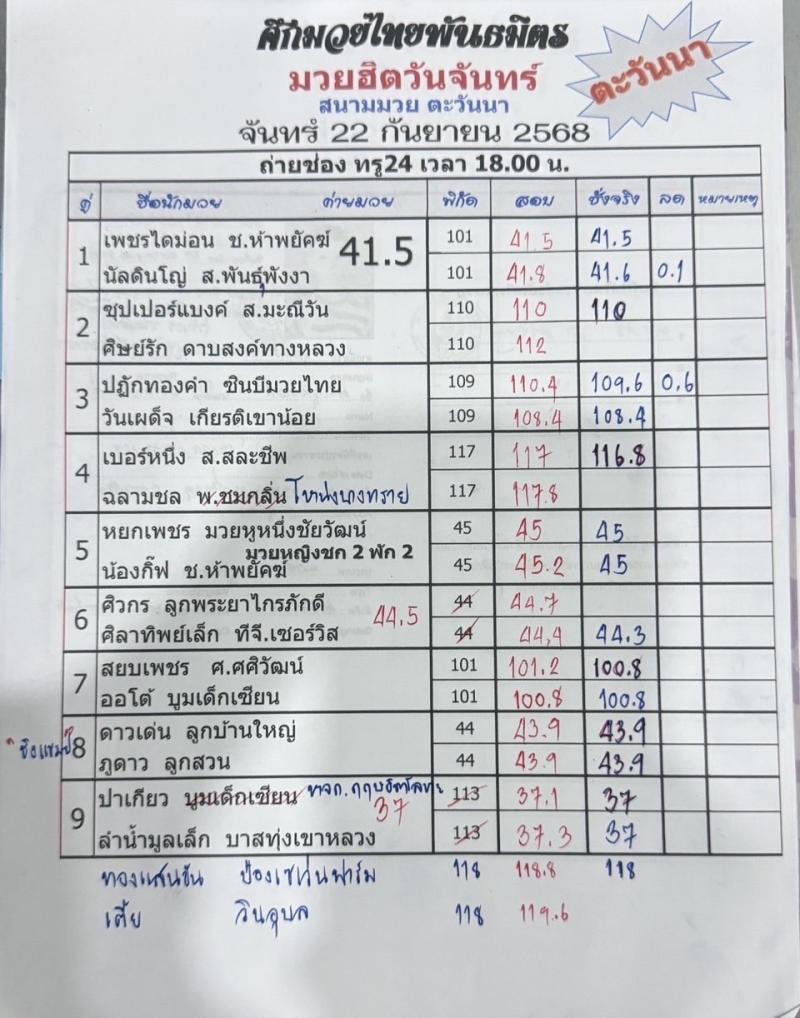 ศึกมวยไทยพันธมิตร
มวยฮิตวันจันทร์
ตะวันนา
สนามมวย ตะวันนา
จันทร์ 22 กันยายน 2568
ถ่ายช่อง ทรู24 เวลา 18.00 น.
คู่ ชื่อนักมวย ค่ายมวย พิกัด สอบ ชั่งจริง ลด หมายเหตุ
1 เพชรไดม่อน ช.ห้าพยัคฆ์ 41.5 101 41.5 41.5
นัลดินโญ่ ส.พันธุ์พังงา 101 41.8 41.6 0.1
2 ซุปเปอร์แบงค์ ส.มะณีวัน 110 110 110
ศิษย์รัก ดาบสงค์ทางหลวง 110 112
3 ปฏักทองคำ ซินบีมวยไทย 109 110.4 109.6 0.6
วันเผด็จ เกียรติเขาน้อย 109 108.4 108.4
4 เบอร์หนึ่ง ส.สละชีพ 117 117 116.8
ฉลามชล พ.ชมกลิ่น โหน่งบางทราย 117 117.8
5 หยกเพชร มวยหูหนึ่งชัยวัฒน์ 45 45 45
มวยหญิงชก 2 พัก 2
น้องกิ๊ฟ ช.ห้าพยัคฆ์ 45 45.2 45
6 ศิวกร ลูกพระยาไกรภักดี 44.5 44 44.7
ศิลาทิพย์เล็ก ทีจี.เซอร์วิส 44 44.4 44.3
7 สยบเพชร ศ.ศศิวัฒน์ 101 101.2 100.8
ออโต้ บูมเด็กเซียน 101 100.8 100.8
ชิงแชมป์ 8 ดาวเด่น ลูกบ้านใหญ่ 44 43.9 43.9
ภูดาว ลูกสวน 44 43.9 43.9
9 ปาเกียว บูมเด็กเซียน 37 113 37.1 37
ลำน้ำมูลเล็ก บาสทุ่งเขาหลวง 113 37.3 37
ทองแสนขัน ป๋องเซเว่นฟาร์ม 118 118.8 118
เตี้ย วินอุบล 118 119.6